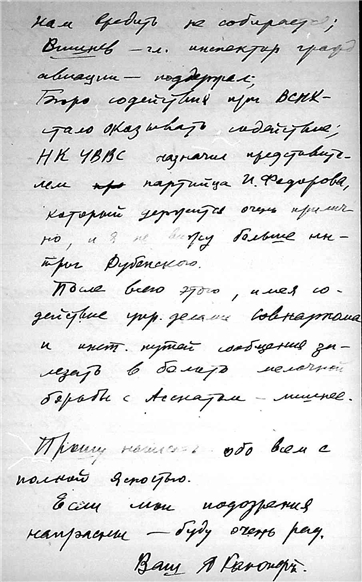 нам вредить не собирается;
Вишнев — гл. инспектор гражд
авиации — поддержал;
Бюро содействия при ВСНХ —
стало оказывать содействие;
НК УВВС назначил представите-
лем партийца И. Федорова,
который держится очень прилич-
но, и я не вижу больше ин-
триг Дубенского.
После всего этого, имея со-
действие упр. делами Совнаркома
и инст. путей сообщения за-
лезать в болото мелочной
борьбы с Асснатом — лишнее.
Прошу написать обо всем с
полной ясностью.
Если мои подозрения
напрасны — буду очень рад.
Ваш